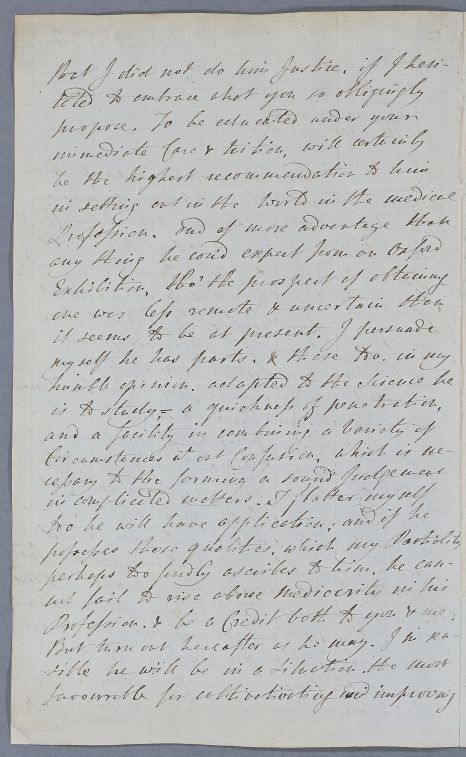 that I did not do him Justice, if I hesi-
tated to embrace what you so obligingly
propose. To be educated under your
immediate Care & tuition, will certainly
be the highest recommendation to him
in setting out in the World in the medical
Profession. and of more advantage than
any thing he could expect from an Oxford
Exhibition, tho' the prospect of obtaining
one was less remote & uncertain than
it seems to be at present. I persuade
myself he has parts. & those too. in my
humble opinion. adapted to the Science he
is to study = a quickness of penetration,
and a facility in combining a Variety of
Circumstances wt. out Confusion, which is ne-
cessary to the forming a sound Judgement
in complicated matters. I flatter myself
too he will have application; and if he
possesses those qualities, which my Partiality
perhaps too fondly ascribes to him, he can-
not fail to rise above mediocrity in his
Profession. & be a Credit both to you & me.
But turn out hereafter as he may. I'm sen-
sible he will be in a Situation the most
favourable for cultivativating and improving